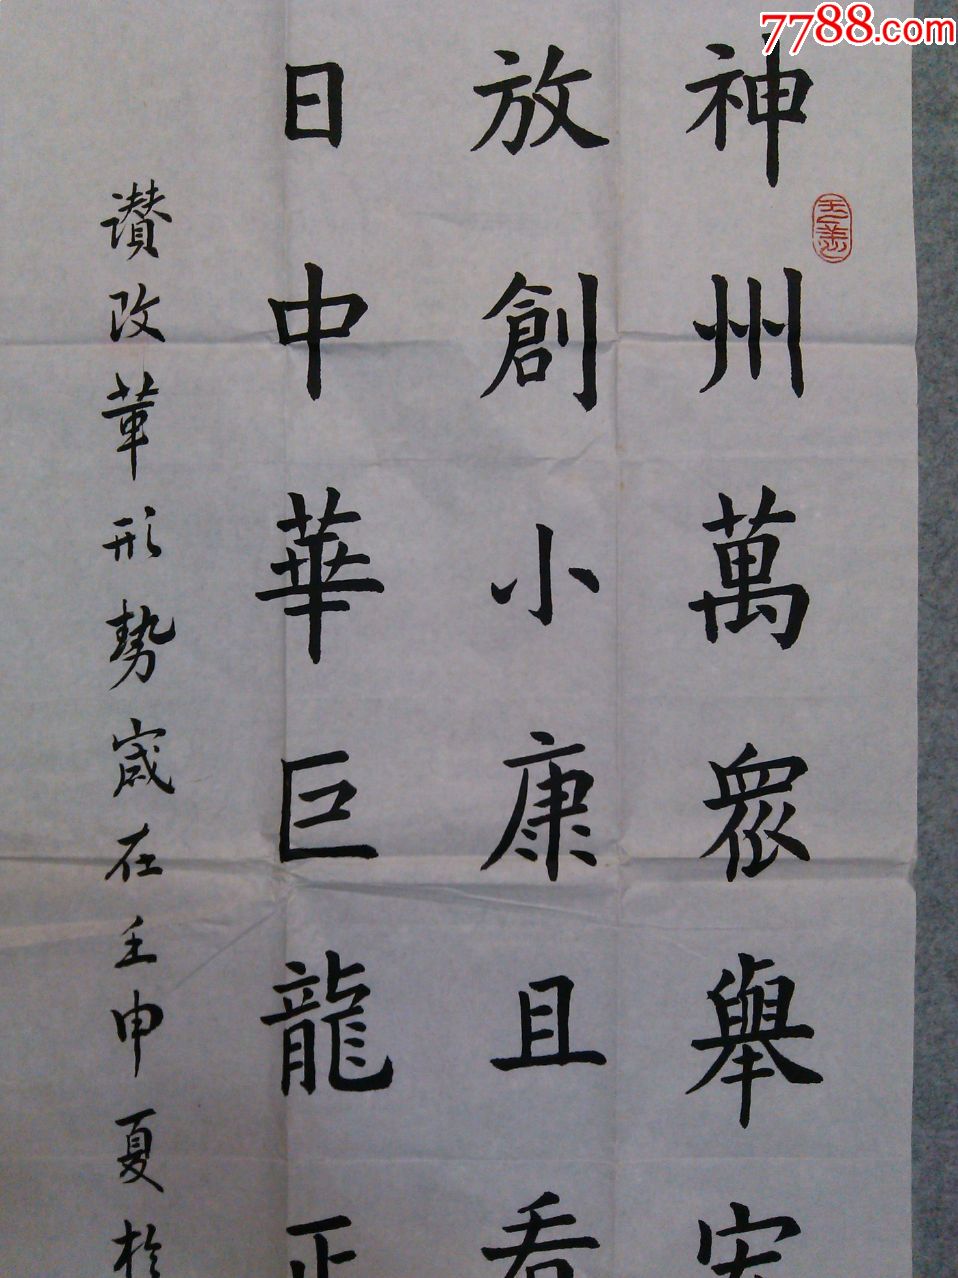 7788.com
神州萬眾舉宏
放創小康且看
日中華巨龍正
讚改革形勢歲在壬申夏於